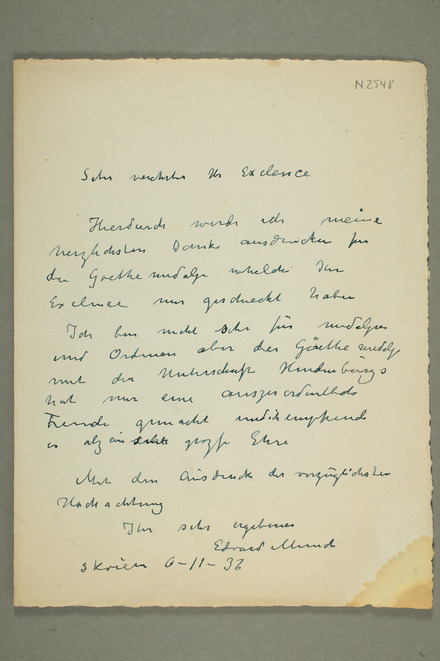 N 2548
Sehr verehrter Hr Exclence
Hierdurch werde ich meine
herzlichsten Danke ausdrücken für
die Goethemedalje welche Ihr
Exelence mir geschickt haben
Ich bin nicht sehr für medaljer
und Ordener aber der Göethe medalje
mit der Unterschaft Hindenburgs
hat mir eine auszerordentliche
Freude gemacht und ich empfinde
es als eine grosse Ehre
Mit dem Ausdruck der vorzüglichsten
Hochachtung
Ihr sehr ergebener
Edvard Munch
Skøien 6-11-32